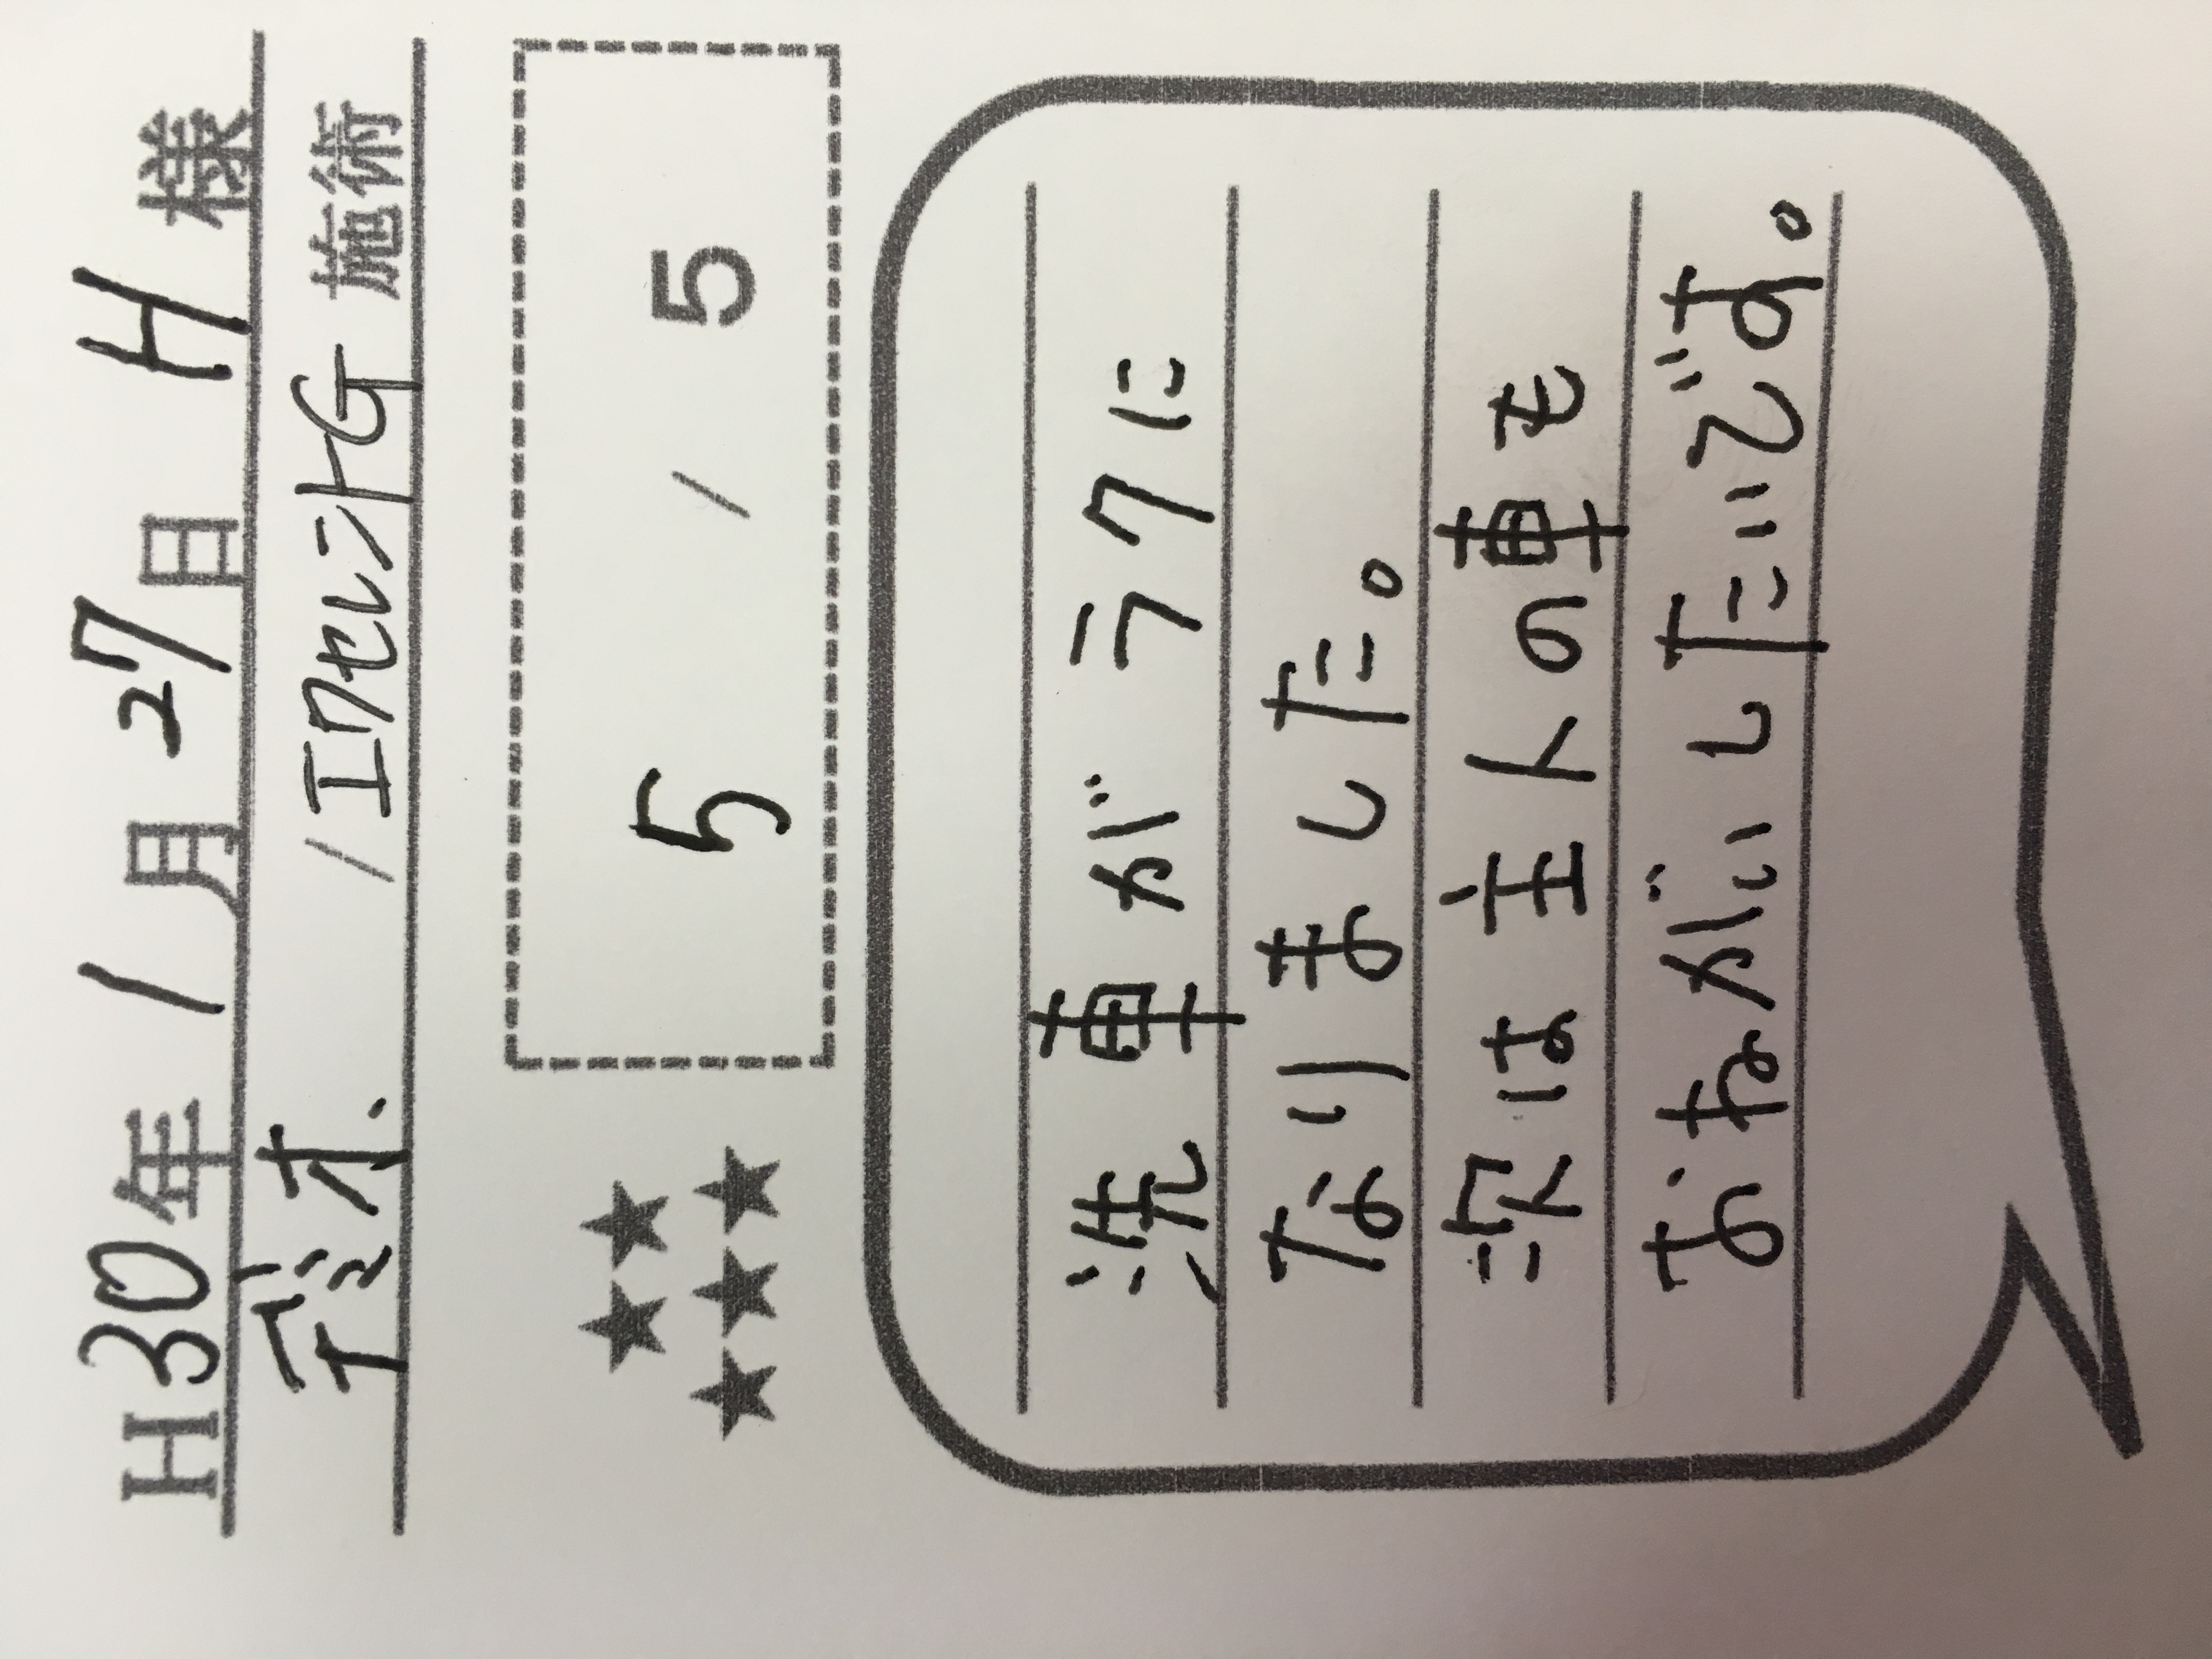 H30年 1月 27日 H 様
デミオ / エクセレントG 施術
★★★★★ 5 / 5
洗車がラクに
なりました。
次は主人の車も
おねがいしたいです。